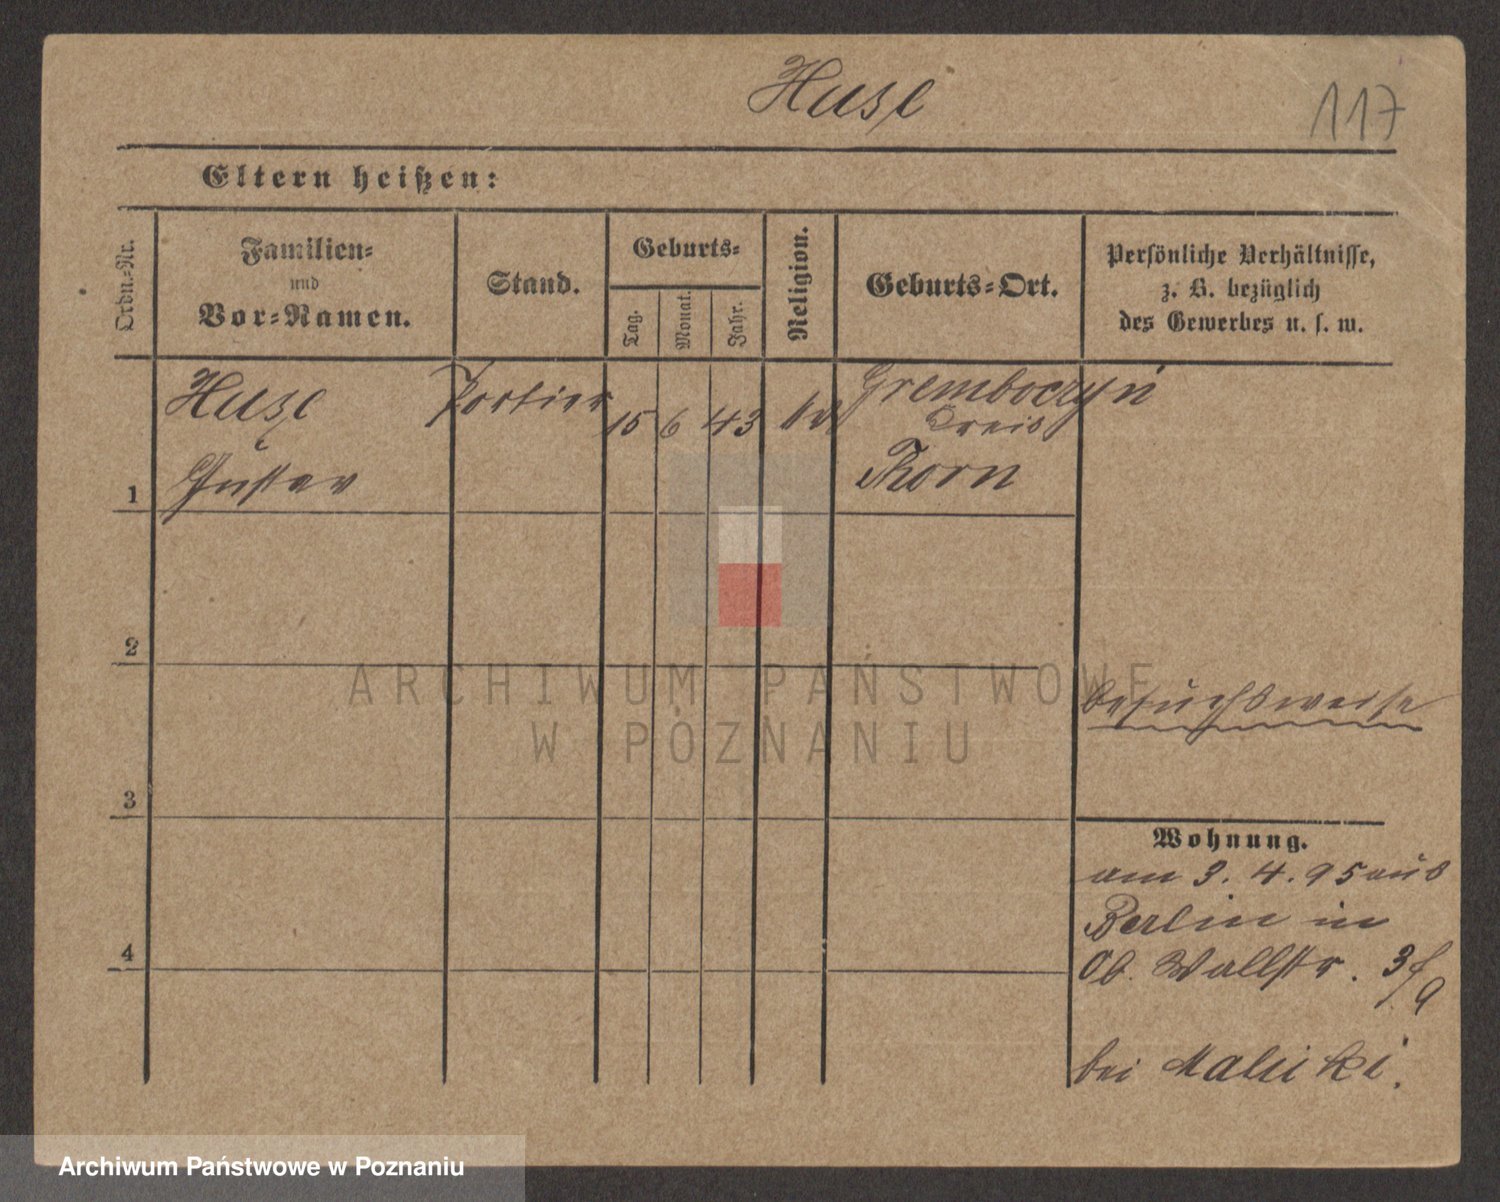 Huse
117
Eltern heißen:
Ordn.-Nr.
Familien-
und
Vor-Namen.
Stand.
Geburts-
Tag.
Monat.
Jahr.
Religion.
Geburts-Ort.
Persönliche Verhältnisse,
z. B. bezüglich
des Gewerbes u. s. w.
1
Huse
Gustav
Portier
15
6
43
Gremboczyń
Kreis
Thorn
2
besuchsweise
3
Wohnung.
am 3. 4. 95 aus
Berlin in
Ob. Wallstr. 3/9
4
bei
ARCHIWUM PAŃSTWOWE
W POZNANIU
Archiwum Państwowe w Poznaniu